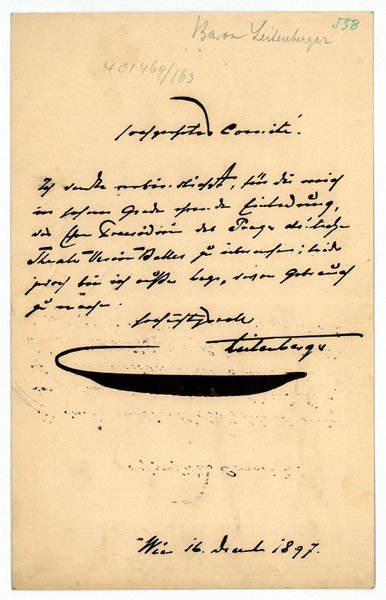 Baron Leitenberger
558
401469/163
hochgeehrtes Comité!
Ich danke verbindlichst, für die mich
im hohem Grade ehrende Einladung,
das Ehren Praesidium des Prager deutschen
Theater Verein Balles zu übernehmen; leider
jedoch bin ich außer Lage, davon Gebrauch
zu machen.
hochachtungsvoll
Leitenberger
Wien 16. Decemb 1897.